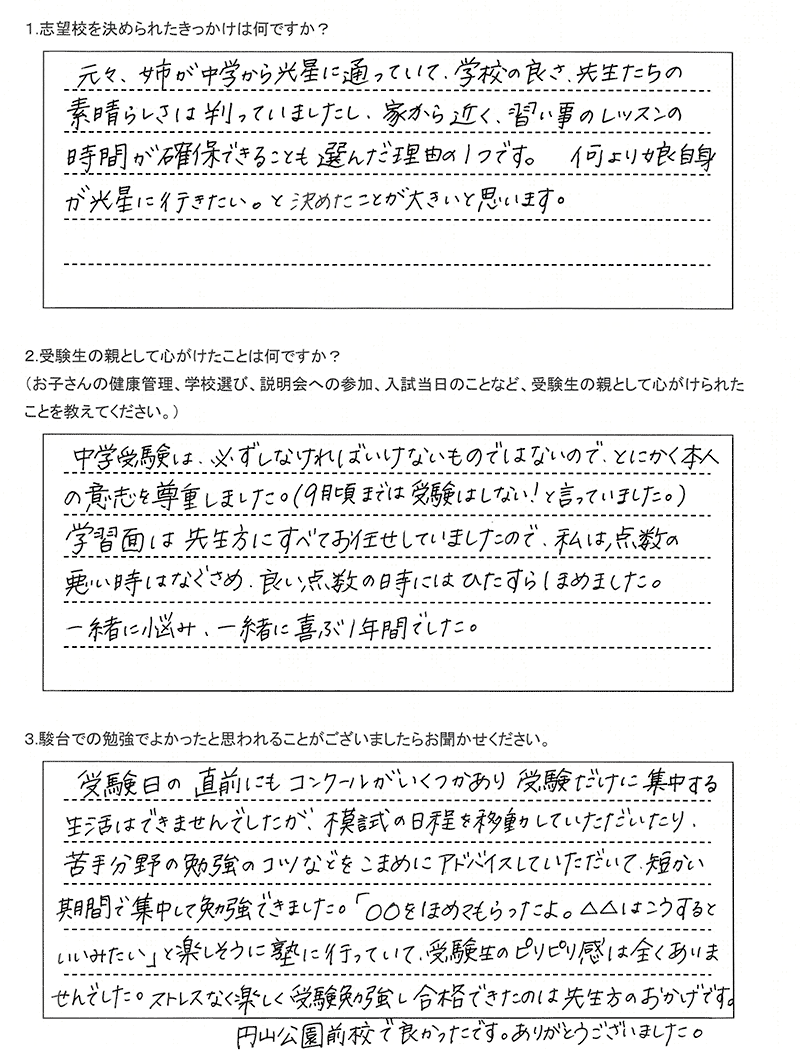 1.志望校を決められたきっかけは何ですか？
元々、姉が中学から光星に通っていて、学校の良さ、先生たちの
素晴らしさは判っていましたし、家から近く、習い事のレッスンの
時間が確保できることも選んだ理由の1つです。 何より娘自身
が光星に行きたい。と決めたことが大きいと思います。
2.受験生の親として心がけたことは何ですか？
（お子さんの健康管理、学校選び、説明会への参加、入試当日のことなど、受験生の親として心がけられた
ことを教えてください。）
中学受験は、必ずしなければいけないものではないので、とにかく本人
の意志を尊重しました。(9月頃までは受験はしない！と言っていました。)
学習面は先生方にすべてお任せしていましたので、私は、点数の
悪い時はなぐさめ、良い点数の時にはひたすらほめました。
一緒に悩み、一緒に喜ぶ1年間でした。
3.駿台での勉強でよかったと思われることがございましたらお聞かせください。
受験日の直前にもコンクールがいくつかあり受験だけに集中する
生活はできませんでしたが、模試の日程を移動していただいたり、
苦手分野の勉強のコツなどをこまめにアドバイスしていただいて、短かい
期間で集中して勉強できました。「○○をほめてもらったよ。△△はこうすると
いいみたい」と楽しそうに塾に行っていて、受験生のピリピリ感は全くあいま
せんでした。ストレスなく楽しく受験勉強し合格できたのは先生方のおかげです。
円山公園前校で良かったです。ありがとうございました。